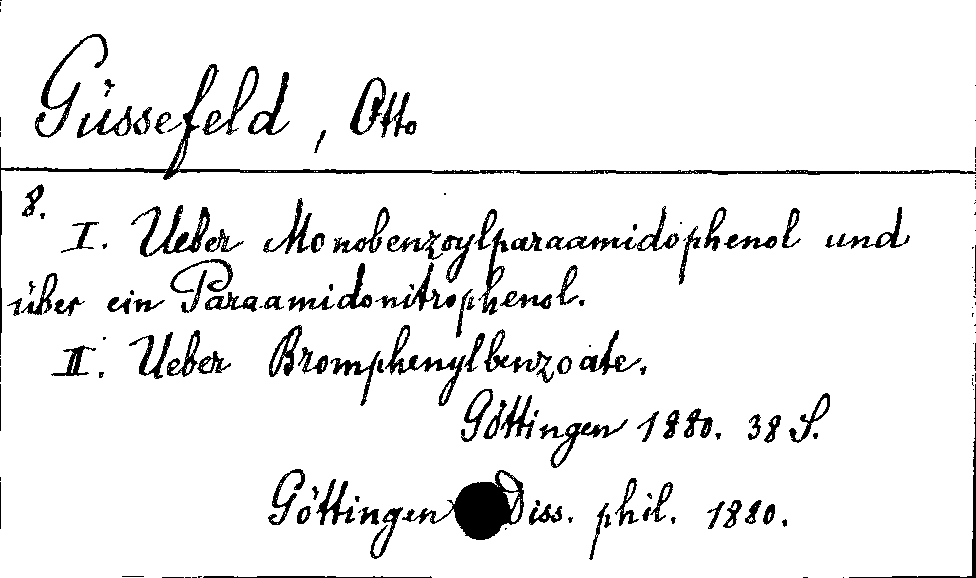 Güssefeld, Otto
8.
I. Ueber Monobenzoylparaamidophenol und
über ein Paraamidonitrophenol.
II. Ueber Bromphenylbenzoate.
Göttingen 1880. 38 S.
Göttingen Diss. phil. 1880.